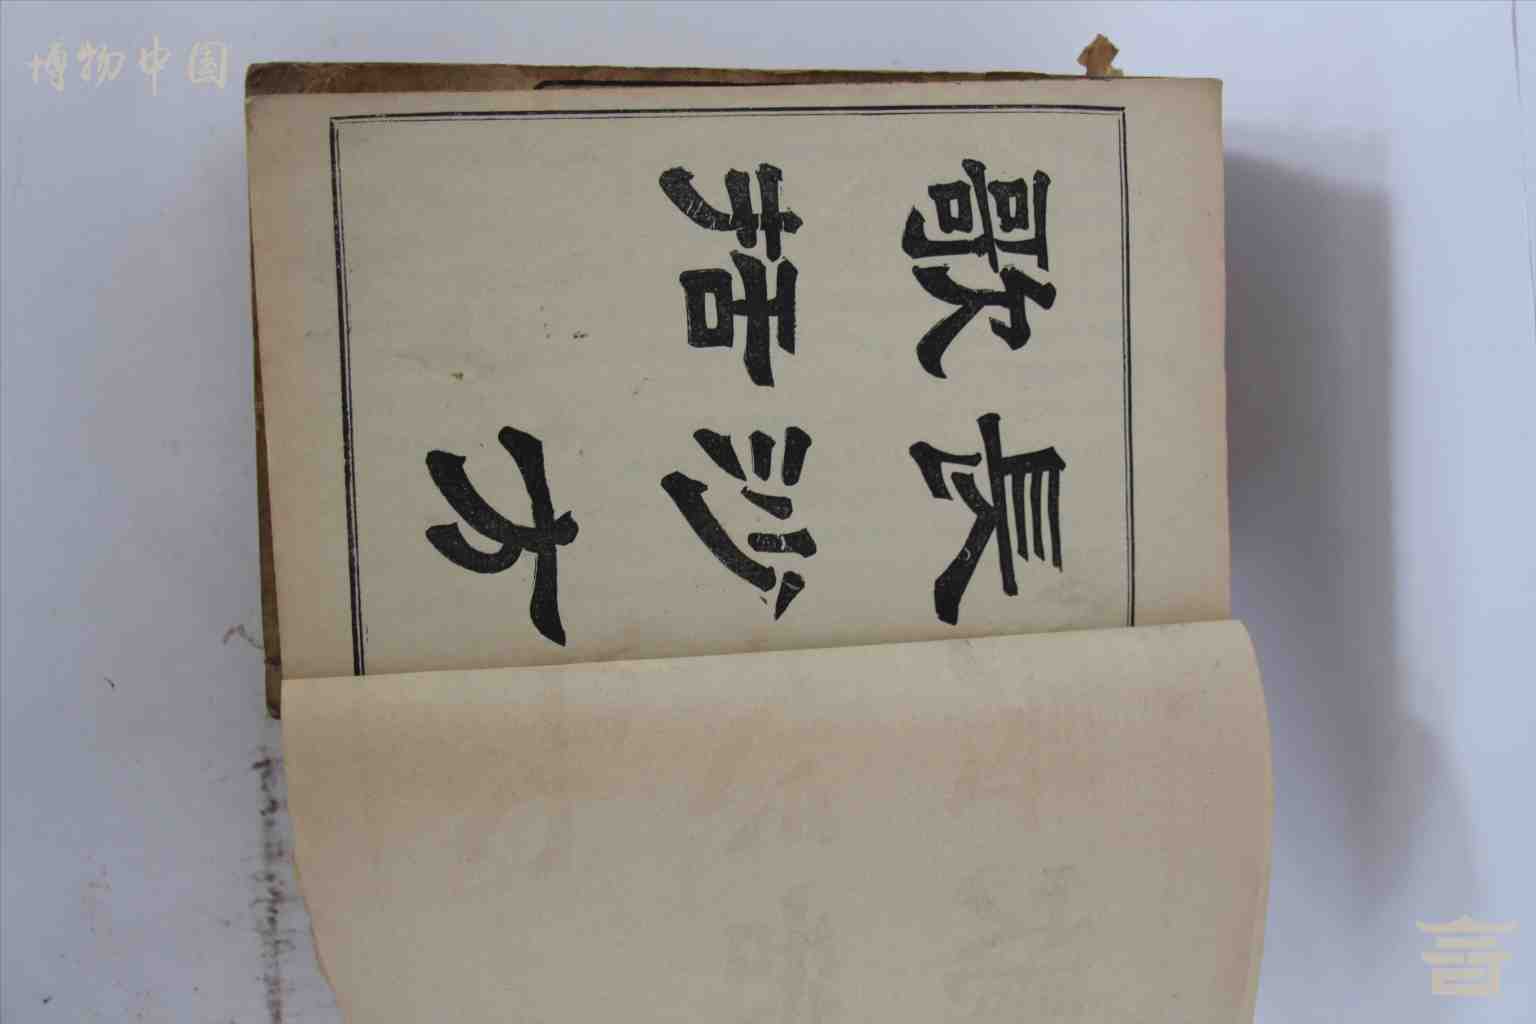 博物中国
長沙方
歌括